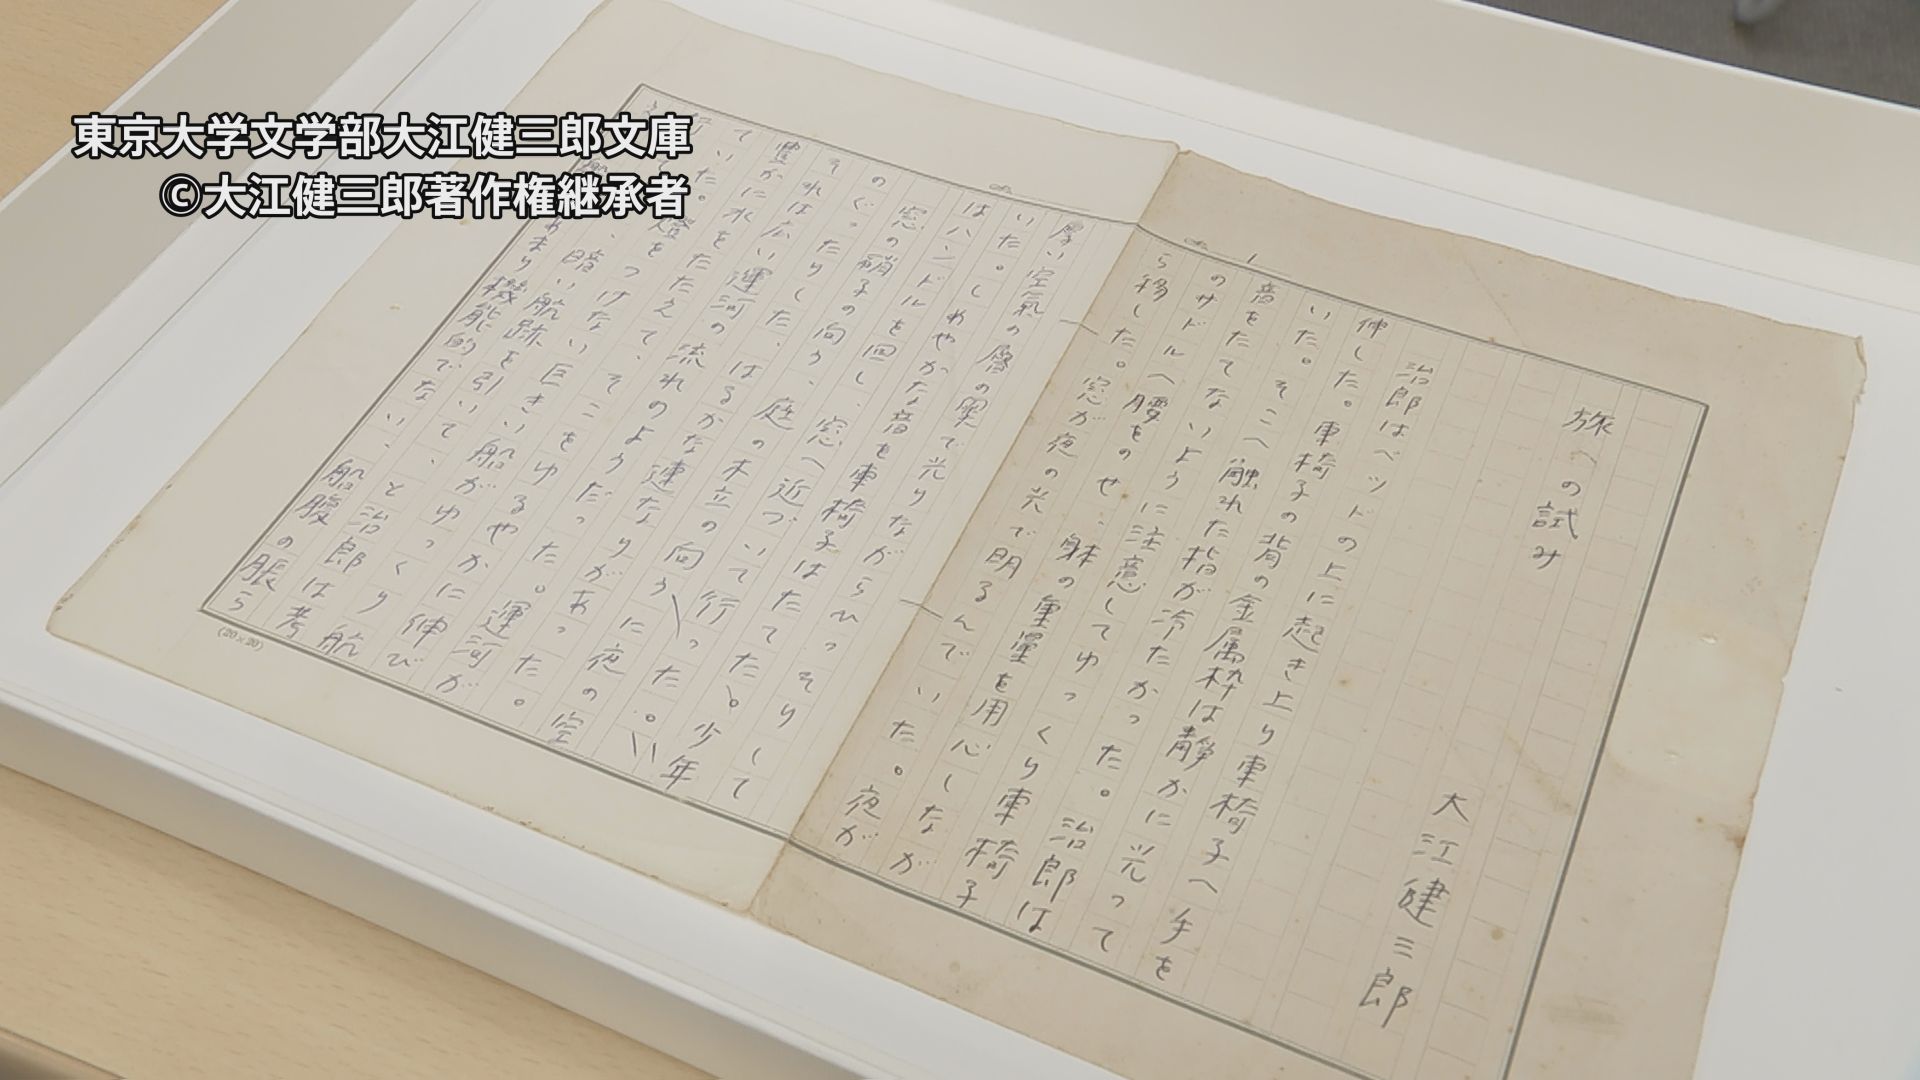 東京大学文学部大江健三郎文庫
©大江健三郎著作権継承者
1
旅への試み
大江健三郎
治郎はベッドの上に起き上り車椅子へ手を
伸した。車椅子の背の金属枠は静かに光って
いた。そこへ触れた指が冷たかった。治郎は
音をたてないように注意してゆっくり車椅子
のサドルへ腰をのせ、躰の重量を用心しなが
ら移した。窓が夜の光で明るんでいた。夜が
厚い空氣の層の奥で光りながらひっそりして
いた。しめやかな音を車椅子はたてた。少年
はハンドルを回し、窓へ近づいて行った。
窓の硝子の向う、庭の木立の向うに夜の空
のぐったりした、はるかな連なりがあった。
それは広い運河の流れのようだった。運河が
豊かに水をたたえて、そこをゆるやかに伸び
ていた。燈をつけない巨きい船がゆっくり航
行、暗い航跡を引いて、と治郎は考
あまり機能的でない、船腹の脹ら
(20×20)